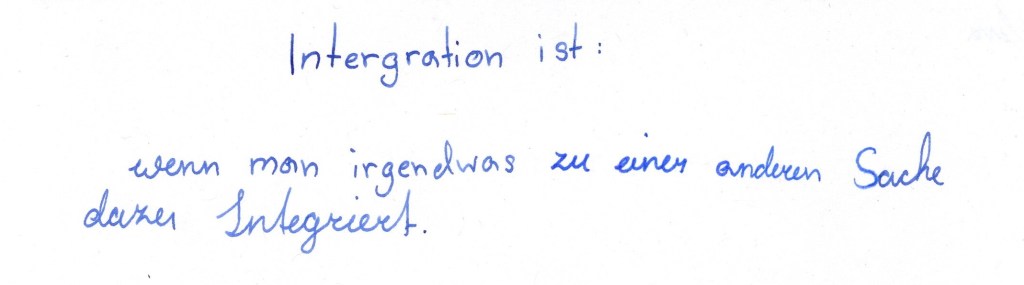 Intergration ist:
wenn man irgendwas zu einer anderen Sache
dazu Integriert.